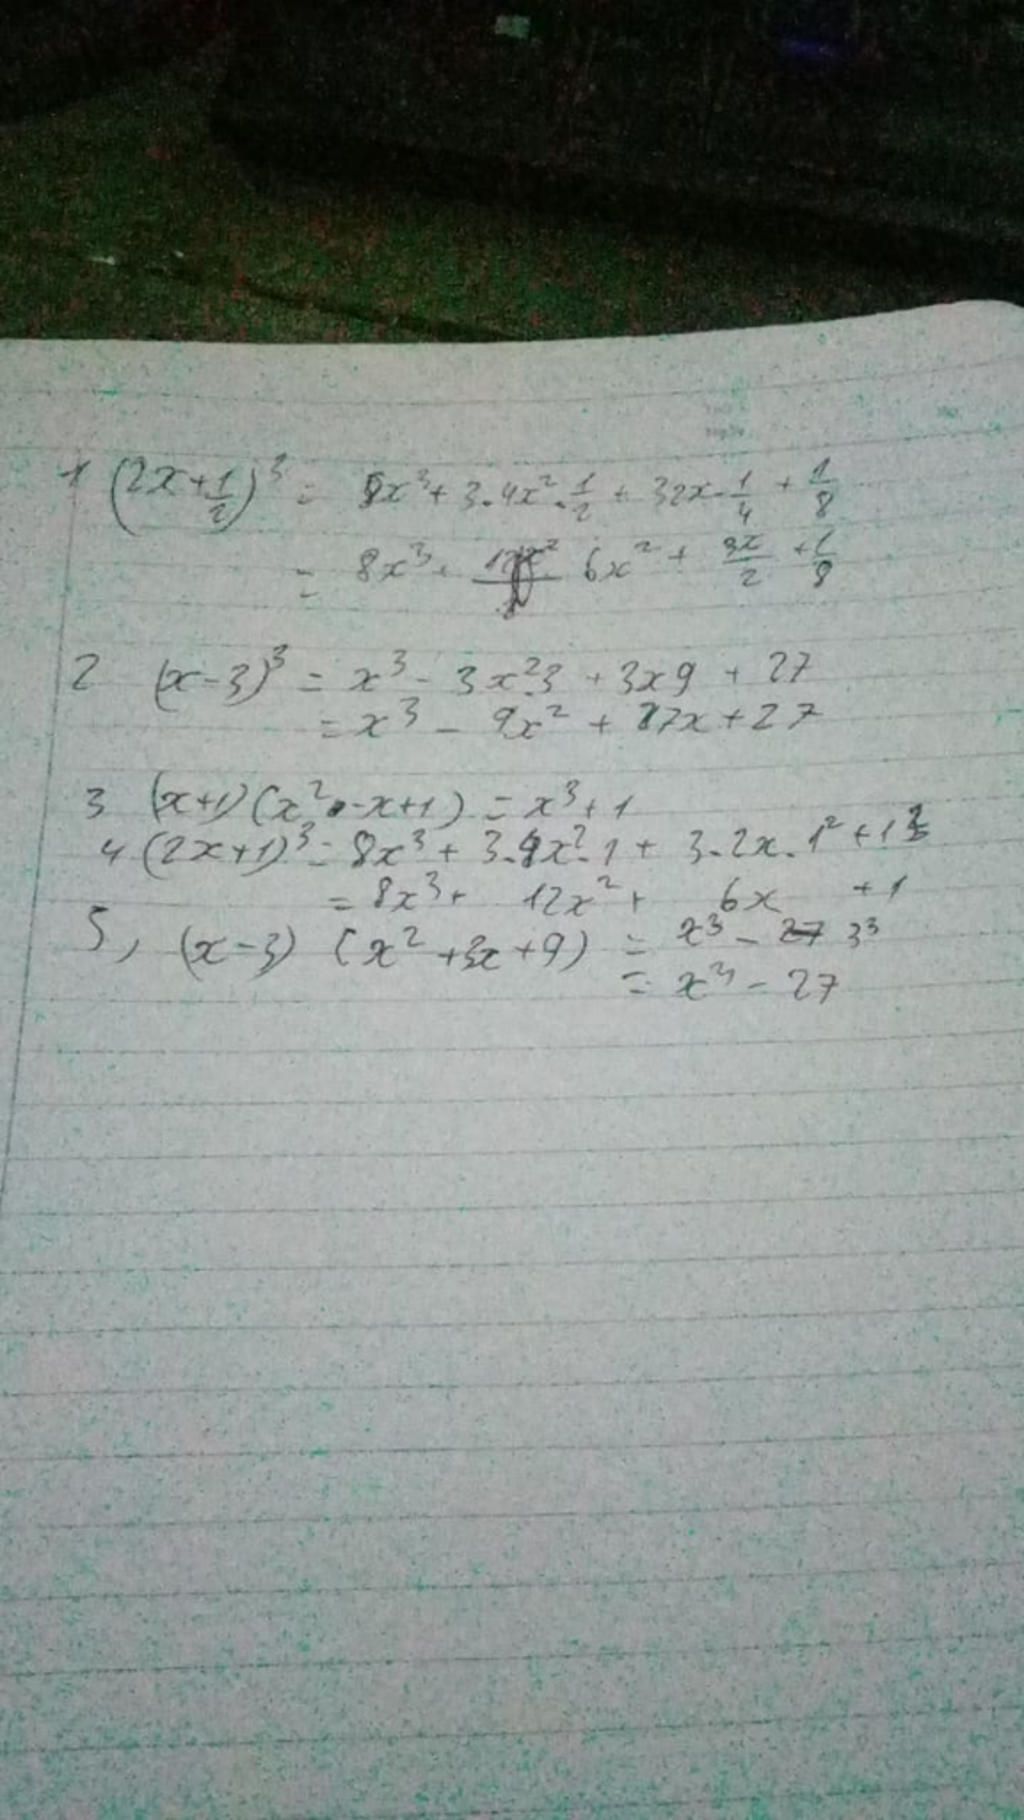 1 (2x+1/2)³ = 8x³ + 3.4x².1/2 + 32x.1/4 + 1/8
= 8x³ + 6x² + 3x/2 + 1/8
2 (x-3)³ = x³ - 3x².3 + 3x9 + 27
= x³ - 9x² + 27x + 27
3 (x+1)(x²-x+1) = x³+1
4 (2x+1)³ = 8x³ + 3.4x².1 + 3.2x.1² + 1³
= 8x³ + 12x² + 6x + 1
5, (x-3) (x²+3x+9) = x³ - 27 3³
= x³ - 27